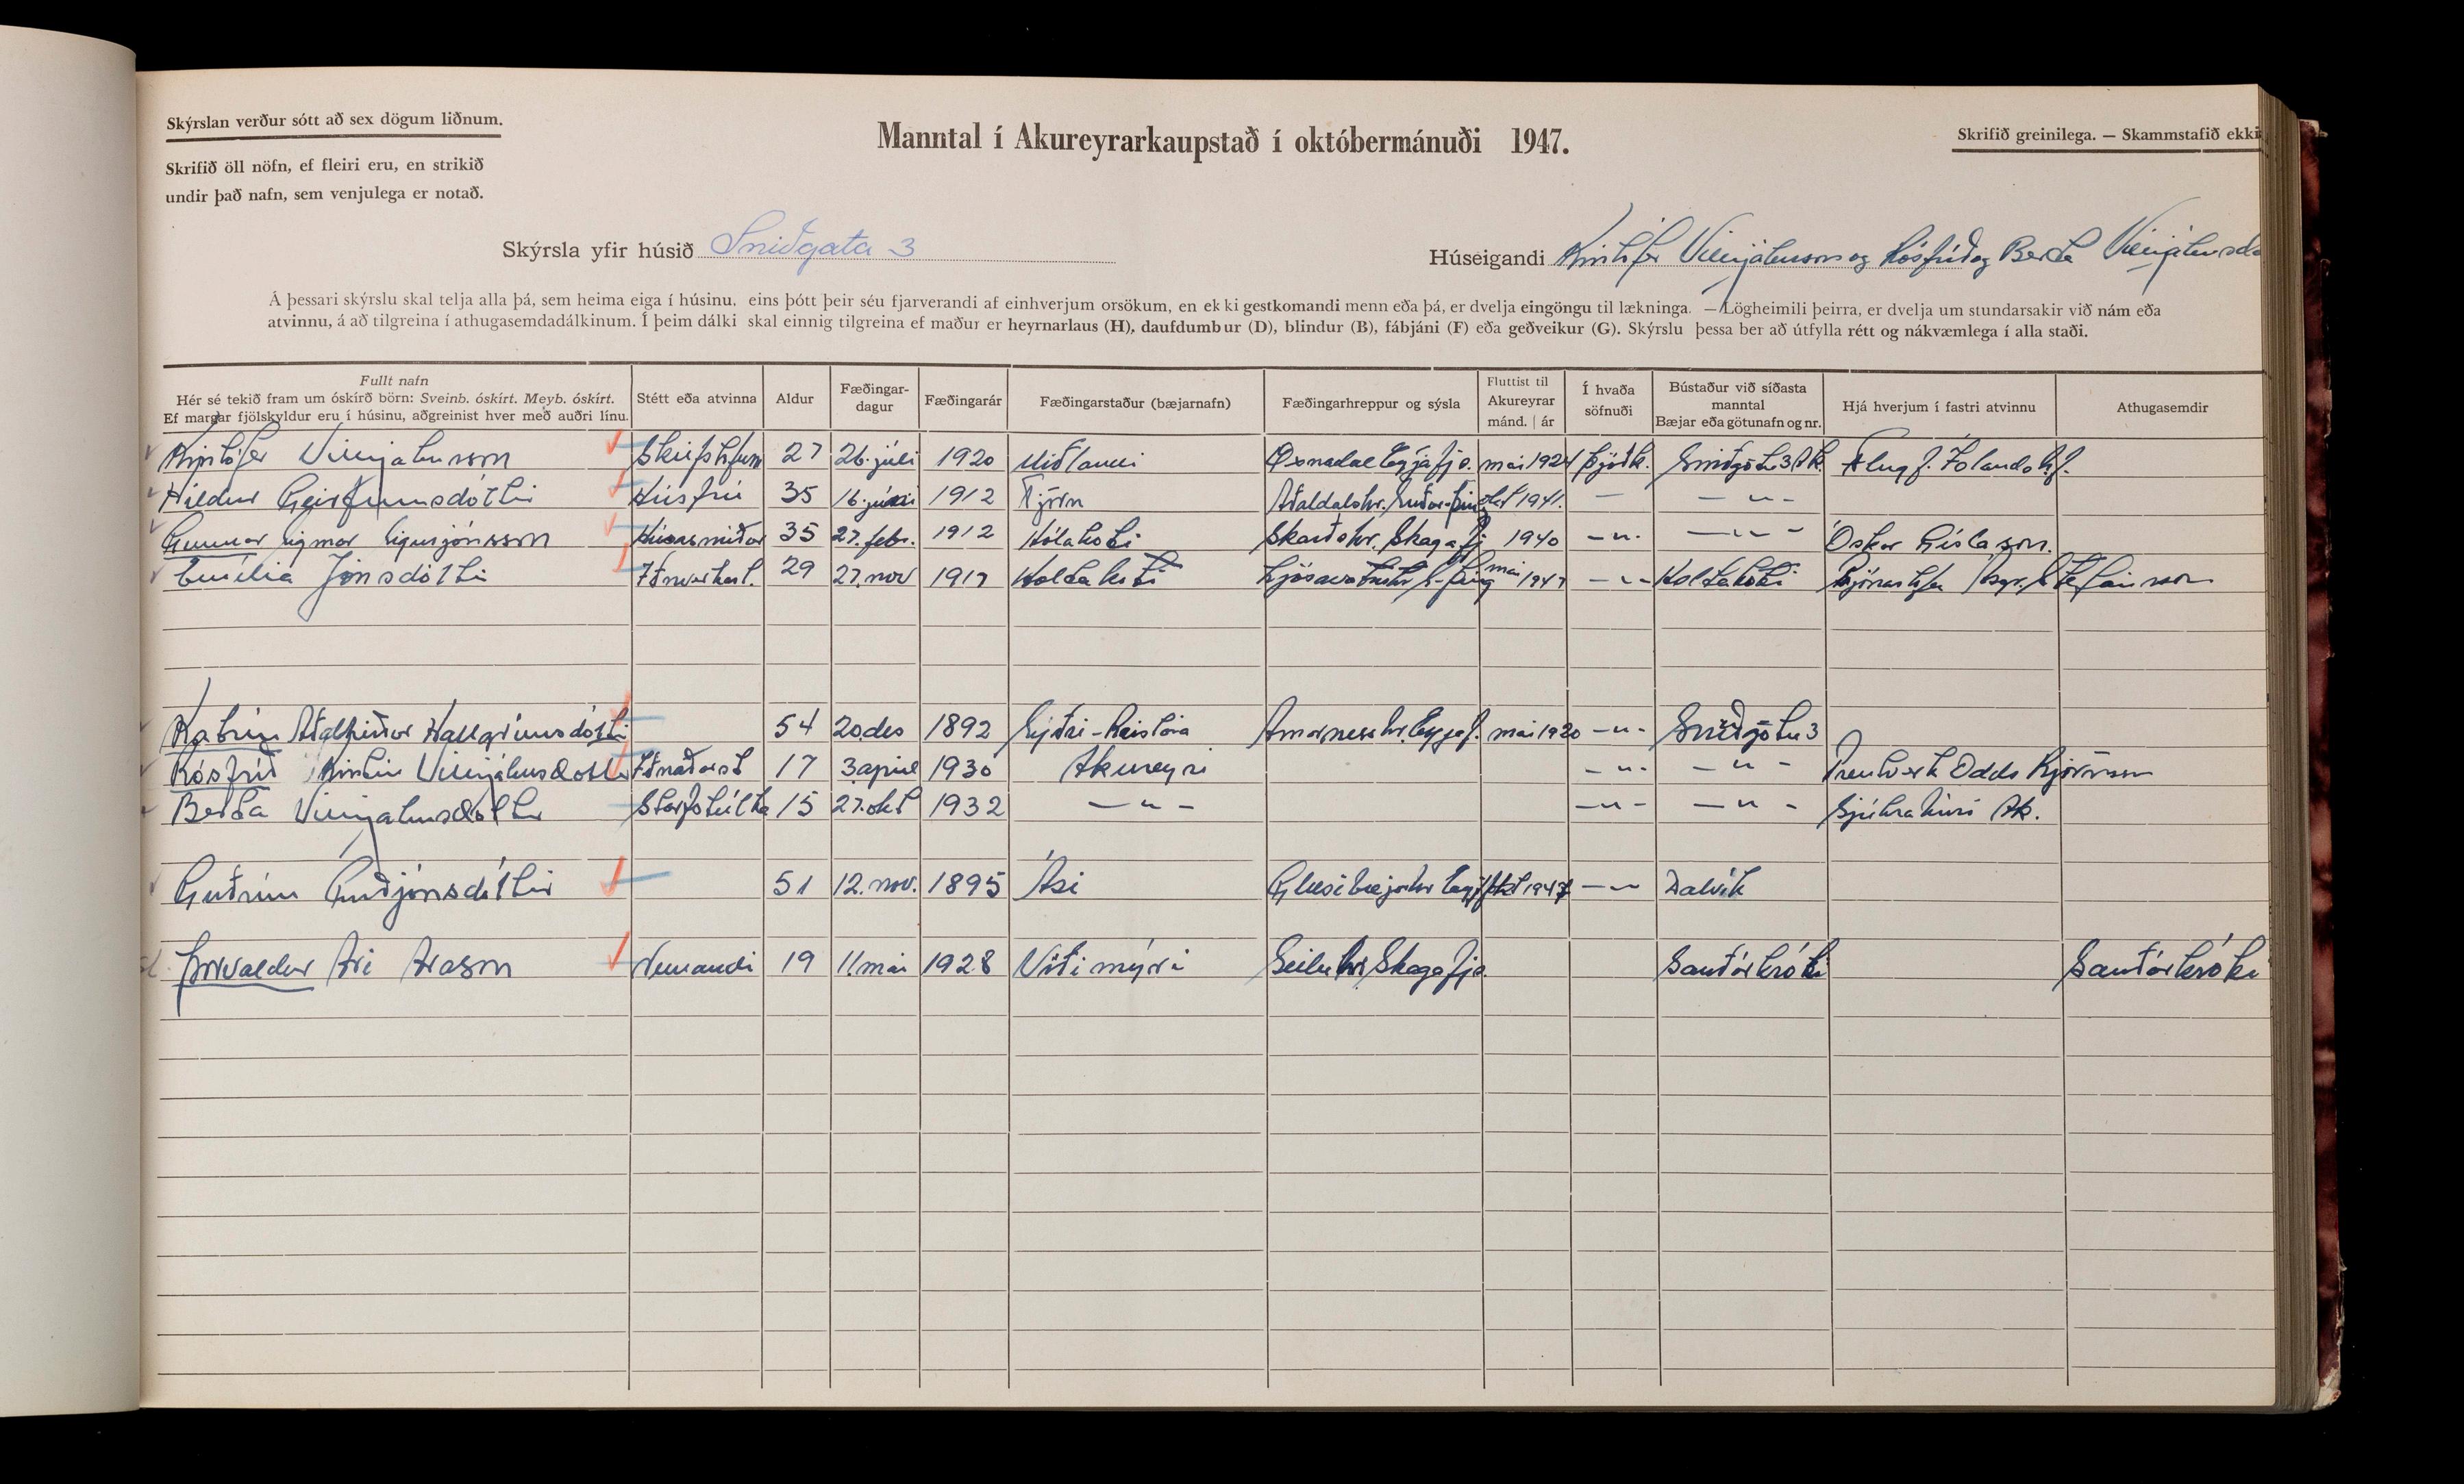 Skýrslan verður sótt að sex dögum liðnum.
Skrifið öll nöfn, ef fleiri eru, en strikið
undir það nafn, sem venjulega er notað.
Manntal í Akureyrarkaupstað í októbermánuði 1947.
Skrifið greinilega. — Skammstafið ekki
Skýrsla yfir húsið Sniðgata 3
Húseigandi Kristófer Vilhjálmsson og Rósfríð og Berta Vilhjálmsdó
Á þessari skýrslu skal telja alla þá, sem heima eiga í húsinu, eins þótt þeir séu fjarverandi af einhverjum orsökum, en ekki gestkomandi menn eða þá, er dvelja eingöngu til lækninga. — Lögheimili þeirra, er dvelja um stundarsakir við nám eða
atvinnu, á að tilgreina í athugasemdadálkinum. Í þeim dálki skal einnig tilgreina ef maður er heyrnarlaus (H), daufdumbur (D), blindur (B), fábjáni (F) eða geðveikur (G). Skýrslu þessa ber að útfylla rétt og nákvæmlega í alla staði.
Fullt nafn
Hér sé tekið fram um óskírð börn: Sveinb. óskírt. Meyb. óskírt.
Ef margar fjölskyldur eru í húsinu, aðgreinist hver með auðri línu.
Stétt eða atvinna
Aldur
Fæðingar-
dagur
Fæðingarár
Fæðingarstaður (bæjarnafn)
Fæðingarhreppur og sýsla
Fluttist til
Akureyrar
mánd. | ár
Í hvaða
söfnuði
Bústaður við síðasta
manntal
Bæjar eða götunafn og nr.
Hjá hverjum í fastri atvinnu
Athugasemdir
Kristófer Vilhjálmsson Skrifstofum 27 26. júlí 1920 Miðlandi Öxnadal Eyjafjs. mai 1924 Þjóðk. Sniðgötu 3 Ak. Flugf. Íslands h.f.
Hildur Geirfinnsdóttir Húsfrú 35 16. júní 1912 Tjörn Aðaldalshr. Suður-Þing okt 1941. — — " —
Gunnar Sigmar Sigurjónsson Húsasmiður 35 27. febr. 1912 Hólakoti Skarðshr. Skagafj 1940 — " — — " — Óskar Gíslason.
Emilía Jónsdóttir Iðnverkast. 29 27. nov 1917 Holtakoti Ljósavatnshr S-Þing mai 1947 — " — Holtakoti
Katrín Aðalheiður Hallgrímsdóttir 54 20. des 1892 Syðri-Reistará Arnarneshr. Eyjaf. mai 1920 — " — Sniðgötu 3
Rósfríð Kristín Vilhjálmsdóttir Iðnaðarst 17 3. apríl 1930 Akureyri — " — — " — Prentverk Odds Björnsson
Berta Vilhjálmsdóttir Starfstúlka 15 27. okt 1932 — " — — " — — " — Sjúkrahúsi Ak.
Guðrún Guðjónsdóttir 51 12. nov. 1895 Ási Glæsibæjarhr Eyjf okt 1947 — " — Dalvík
Þorvaldur Ari Arason Nemandi 19 11 mai 1928 Víðimýri Seiluhr. Skagafjs. Sauðárkróki Sauðárkróki